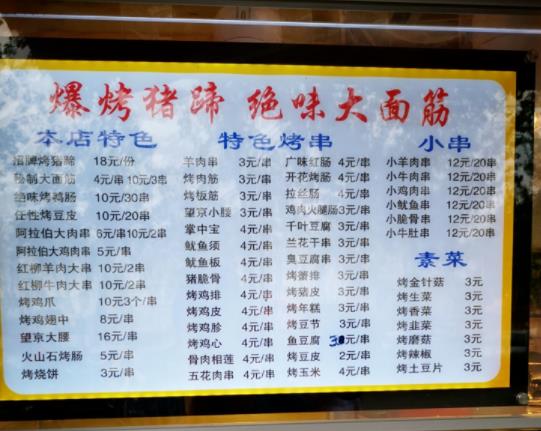 爆烤猪蹄 绝味大面筋
本店特色
招牌烤猪蹄 18元/份
秘制大面筋 4元/串 10元/3串
绝味烤鸭肠 10元/30串
任性烤豆皮 10元/20串
阿拉伯大肉串 6元/串10元/2串
阿拉伯大鸡肉串 5元/串
红柳羊肉大串 10元/2串
红柳牛肉大串 10元/2串
烤鸡爪 10元3个/串
烤鸡翅中 8元/串
望京大腰 16元/串
火山石烤肠 5元/串
烤烧饼 3元/串
特色烤串
羊肉串 3元/串
烤肉筋 3元/串
烤板筋 3元/串
望京小腰 3元/串
掌中宝 4元/串
鱿鱼须 4元/串
鱿鱼板 4元/串
猪脆骨 4元/串
烤鸡排 4元/串
烤鸡皮 4元/串
烤鸡胗 4元/串
烤鸡心 4元/串
骨肉相莲 4元/串
五花肉串 4元/串
广味红肠 4元/串
开花烤肠 4元/串
拉丝肠 4元/串
鸡肉火腿肠3元/串
千叶豆腐 3元/串
兰花干串 3元/串
臭豆腐串 3元/串
烤蕾排 3元/串
烤猪皮 3元/串
烤年糕 3元/串
烤豆节 3元/串
鱼豆腐 3元/串
烤豆皮 2元/串
烤玉米 4元/串
小串
小羊肉串 12元/20串
小牛肉串 12元/20串
小鸡肉串 12元/20串
小鱿鱼串 12元/20串
小脆骨串 12元/20串
小牛肚串 12元/20串
素菜
烤金针菇 3元
烤生菜 3元
烤香菜 3元
烤韭菜 3元
烤蘑菇 3元
烤辣椒 3元
烤土豆片 3元